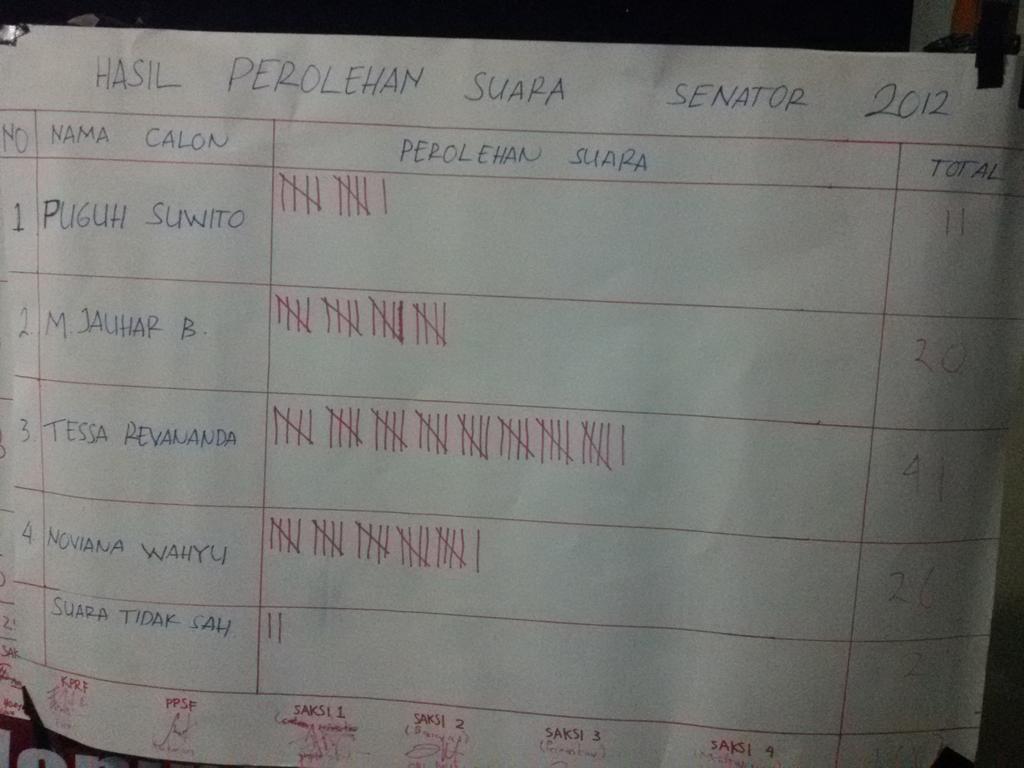 HASIL PEROLEHAN SUARA SENATOR 2012
NO NAMA CALON PEROLEHAN SUARA TOTAL
1 PUGUH SUWITO 11
2. M. JAUHAR B. 20
3. TESSA REVANANDA 41
4. NOVIANA WAHYU 26
SUARA TIDAK SAH 2
SAK
KPRF PPSF SAKSI 1 SAKSI 2 SAKSI 3 SAKSI 4